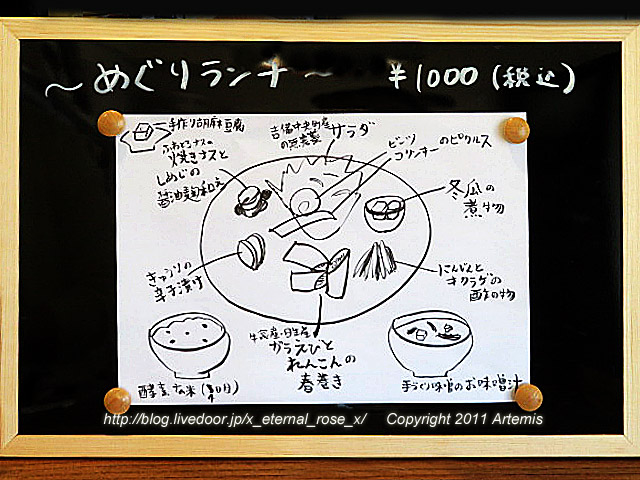 ～めぐりランチ～ ¥1000(税込)
手作り胡麻豆腐
ふわとろナスの
焼きナスと
しめじの
醤油麹和え
吉備中央町産
の無農薬
サラダ
ビーツ
コリンキーのピクルス
冬瓜の
煮物
きゅうりの
辛子漬け
にんじんと
キクラゲの
酢の物
牛窓産・日生産
ガラえびと
れんこんの
春巻き
酵素玄米
手づくり味噌のお味噌汁
http://blog.livedoor.jp/x_eternal_rose_x/ Copyright 2011 Artemis